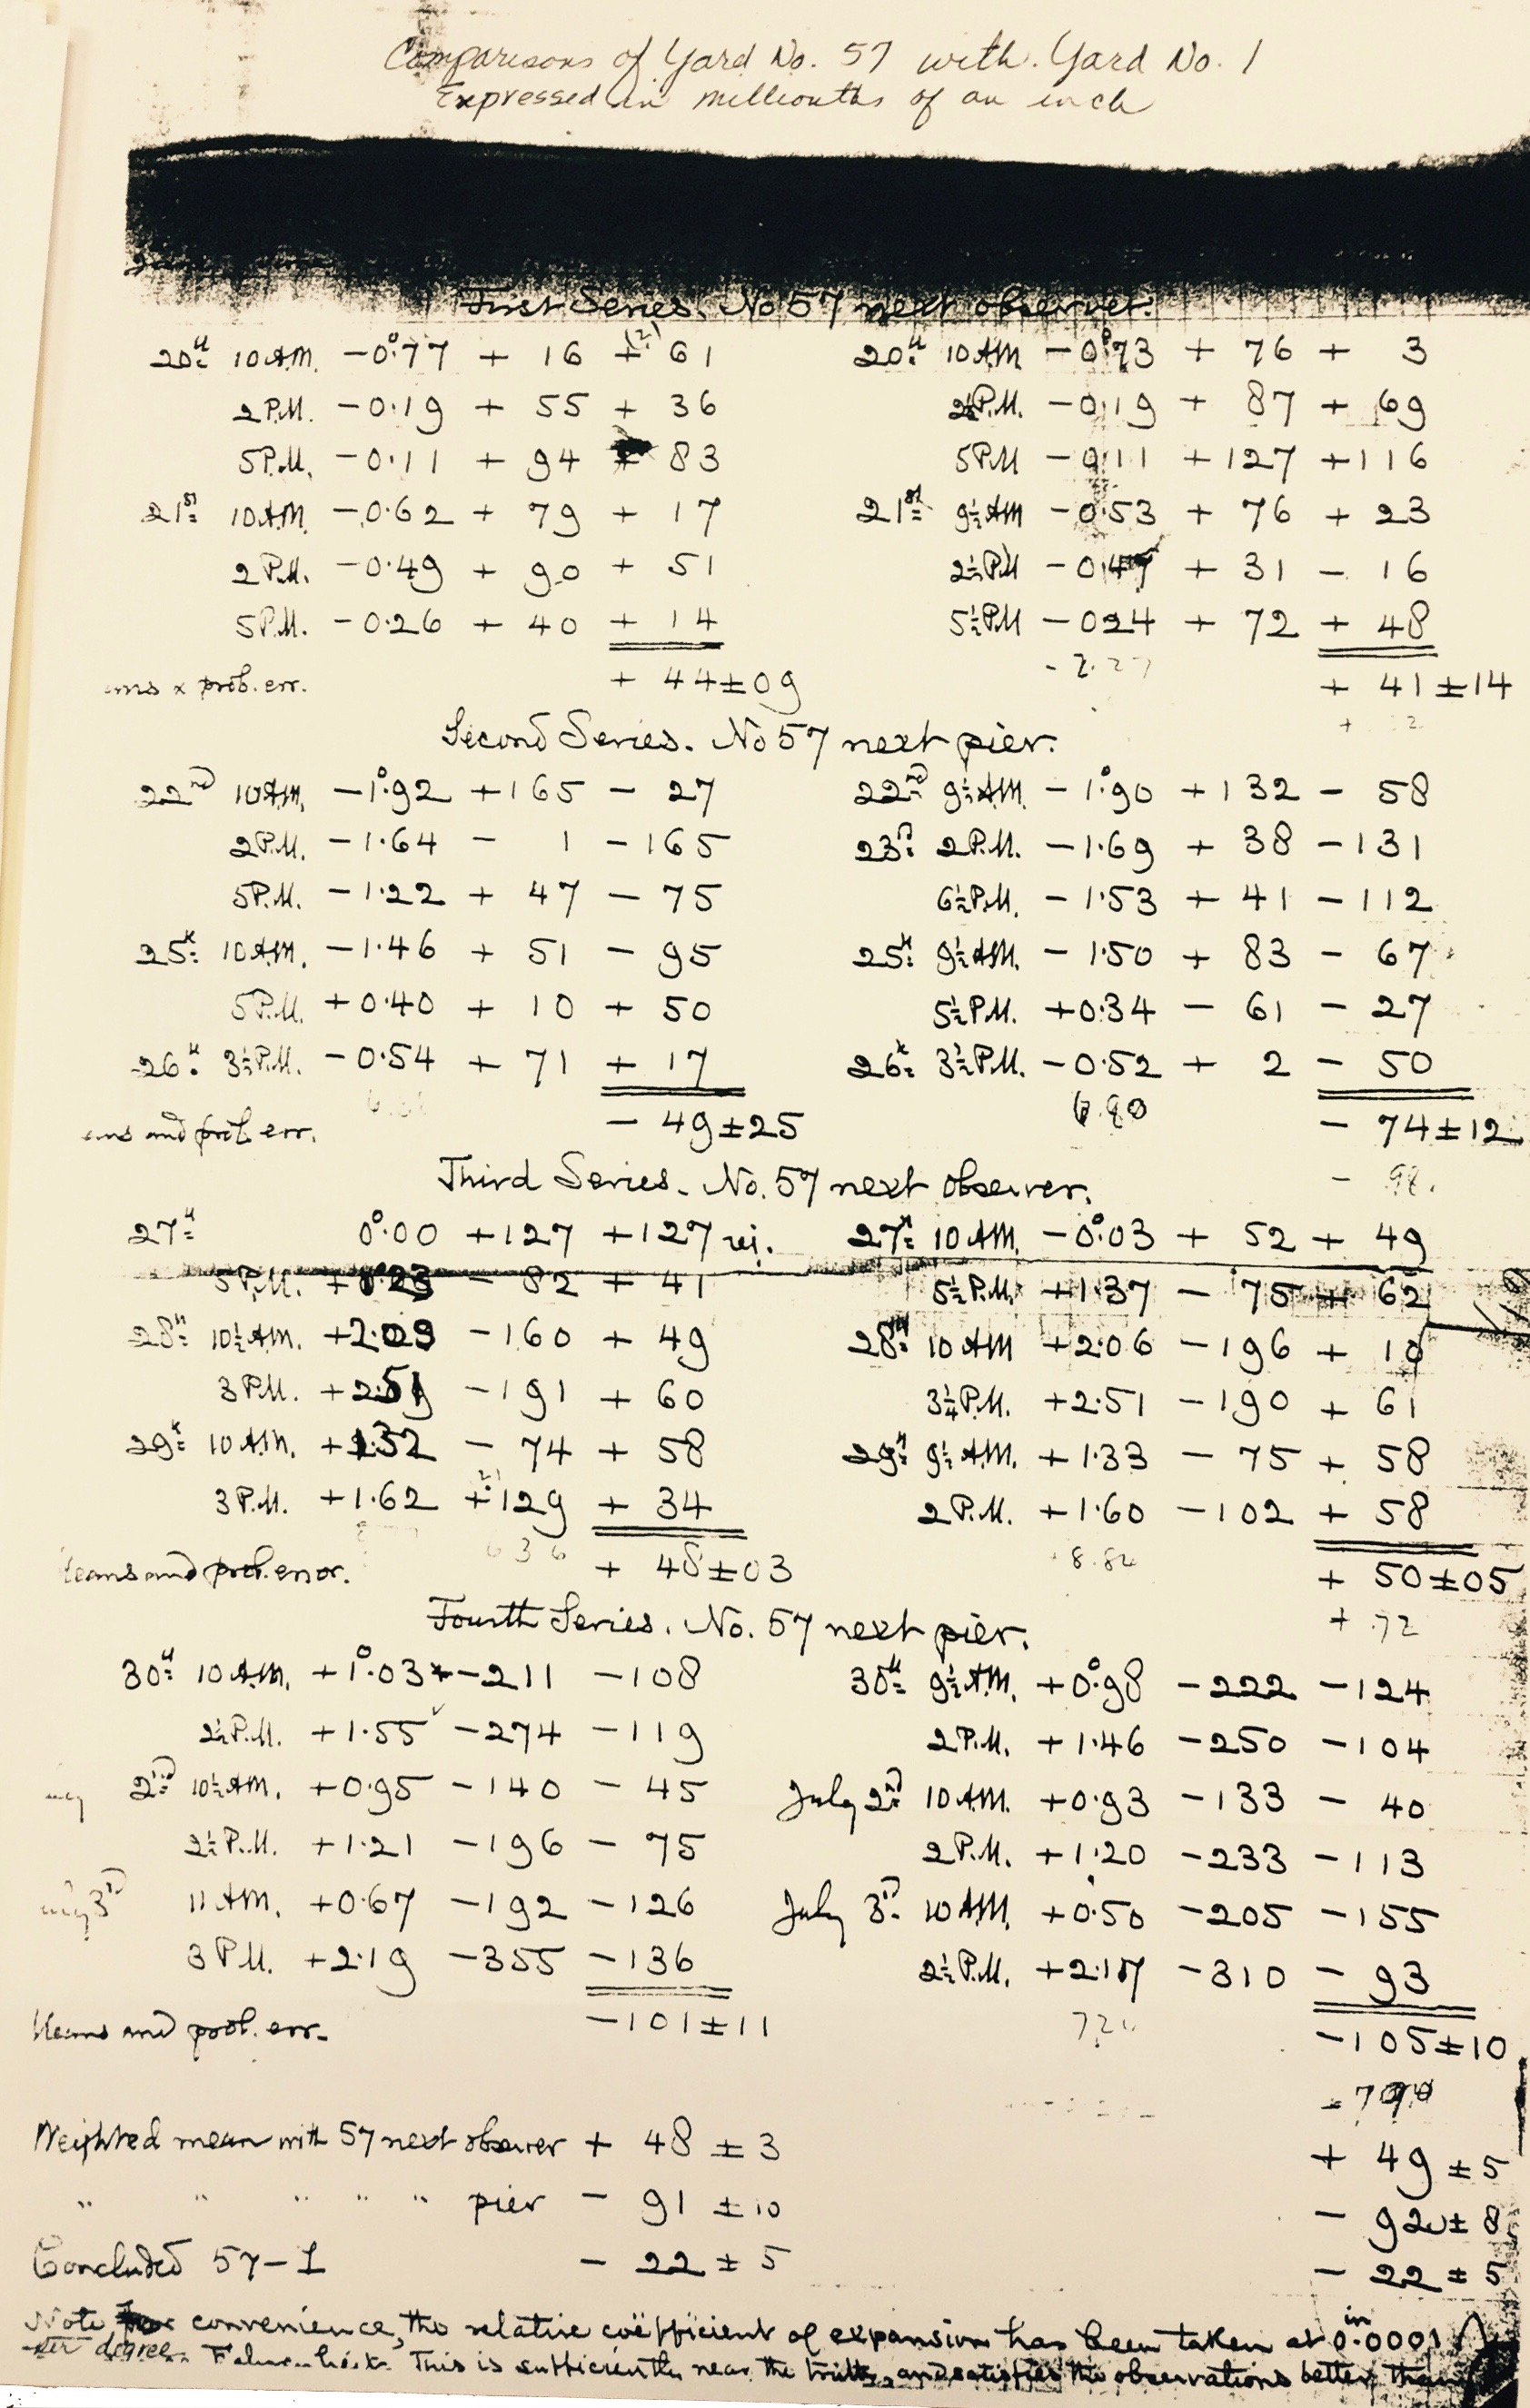 Comparisons of Yard No. 57 with Yard No. 1
Expressed in millionths of an inch
First Series. No 57 next observer.
20th 10 A.M. -0°.77 + 16 + (2) 61 20th 10 A.M. -0°.73 + 76 + 3
2 P.M. -0.19 + 55 + 36 2½ P.M. -0.19 + 87 + 69
5 P.M. -0.11 + 94 + 83 5 P.M. -0.11 +127 +116
21st 10 A.M. -0.62 + 79 + 17 21st 9½ A.M. -0.53 + 76 + 23
2 P.M. -0.49 + 90 + 51 2½ P.M. -0.47 + 31 - 16
5 P.M. -0.26 + 40 + 14 5½ P.M. -0.24 + 72 + 48
- 2.27
& prob. err. + 44±09 + 41±14
Second Series. No 57 next pier.
22nd 10 A.M. -1°.92 +165 - 27 22nd 9½ A.M. -1°.90 +132 - 58
2 P.M. -1.64 - 1 -165 23d 2 P.M. -1.69 + 38 -131
5 P.M. -1.22 + 47 - 75 6½ P.M. -1.53 + 41 -112
25th 10 A.M. -1.46 + 51 - 95 25th 9½ A.M. -1.50 + 83 - 67
5 P.M. +0.40 + 10 + 50 5½ P.M. +0.34 - 61 - 27
26th 3½ P.M. -0.54 + 71 + 17 26th 3½ P.M. -0.52 + 2 - 50
6.80
and prob. err. - 49±25 - 74±12
Third Series. No. 57 next observer. - 98.
27th 0°.00 +127 +127 rej. 27th 10 A.M. -0°.03 + 52 + 49
5 P.M. +1.23 - 82 + 41 5½ P.M. +1.37 - 75 + 62
28th 10½ A.M. +2.09 -160 + 49 28th 10 A.M. +2.06 -196 + 10
3 P.M. +2.51 -191 + 60 3¼ P.M. +2.51 -190 + 61
29th 10 A.M. +1.32 - 74 + 58 29th 9½ A.M. +1.33 - 75 + 58
3 P.M. +1.62 -129 + 34 2 P.M. +1.60 -102 + 58
8.84
Means and prob. error. + 48±03 + 50±05
Fourth Series. No. 57 next pier. + .72
30th 10 A.M. +1°.03 -211 -108 30th 9½ A.M. +0°.98 -222 -124
2½ P.M. +1.55 -274 -119 2 P.M. +1.46 -250 -104
2nd 10½ A.M. +0.95 -140 - 45 July 2nd 10 A.M. +0.93 -133 - 40
2½ P.M. +1.21 -196 - 75 2 P.M. +1.20 -233 -113
3d 11 A.M. +0.67 -192 -126 July 3d 10 A.M. +0.50 -205 -155
3 P.M. +2.19 -355 -136 2½ P.M. +2.17 -310 - 93
Means and prob. err. -101±11 -105±10
Weighted mean with 57 next observer + 48 ± 3 + 49 ± 5
" " " " " pier - 91 ± 10 - 92 ± 8
Concluded 57-1 - 22 ± 5 - 22 ± 5
Note, For convenience, the relative coëfficient of expansion has been taken at 0.in0001
per degree Fahrenheit. This is sufficiently near the truth, and satisfies the observations better than